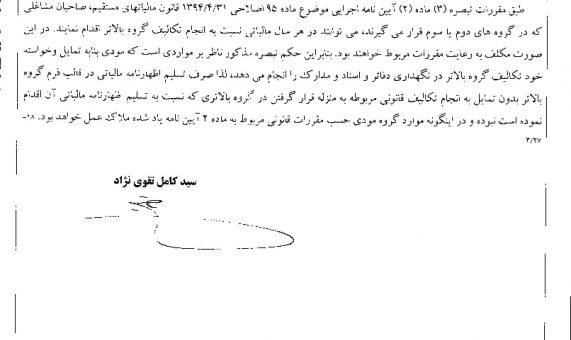 طبق مقررات تبصره (۳) ماده (۲) آیین نامه اجرایی موضوع ماده ۹۵ اصلاحی ۱۳۹۴/۴/۳۱ قانون مالیاتهای مستقیم، صاحبان مشاغلی
که در گروه های دوم یا سوم قرار می گیرند، می توانند در هر سال مالیاتی نسبت به انجام تکالیف گروه بالاتر اقدام نمایند. در این
صورت مکلف به رعایت مقررات مربوط خواهند بود. بنابراین حکم تبصره مذکور ناظر بر مواردی است که مودی بنابه تمایل وخواسته
خود تکالیف گروه بالاتر در نگهداری دفاتر و اسناد و مدارک را انجام می دهد، لذا صرف تسلیم اظهارنامه مالیاتی در قالب فرم گروه
بالاتر بدون تمایل به انجام تکالیف قانونی مربوطه به منزله قرار گرفتن در گروه بالاتری که نسبت به تسلیم اظهارنامه مالیاتی آن اقدام
نموده است نبوده و در اینگونه موارد گروه مودی حسب مقررات قانونی مربوط به ماده ۲ آیین نامه یاد شده ملاک عمل خواهد بود. ۱۸-
۳/۲۷
سید کامل تقوی نژاد